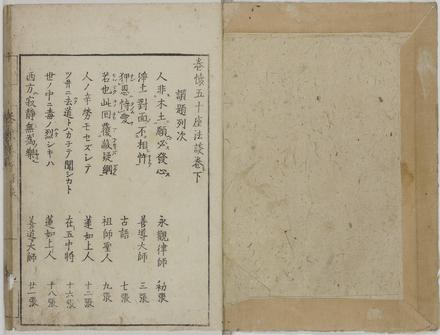 巻懐五十座法談巻下
讃題列次
人非木土願必發心 永觀律師 初張
淨土對面不相忤 善導大師 三張
狎恩恃愛 古語 七張
若也此回覆蔽疑網 祖師聖人 九張
人ノ辛勞モセズシテ 蓮如上人 十二張
ツヰニ去道トハカチテ聞シカト 在五中將 十六張
世ノ中ニ毒ノ烈シキハ 蓮如上人 十八張
西方寂靜無爲樂 善導大師 廿一張